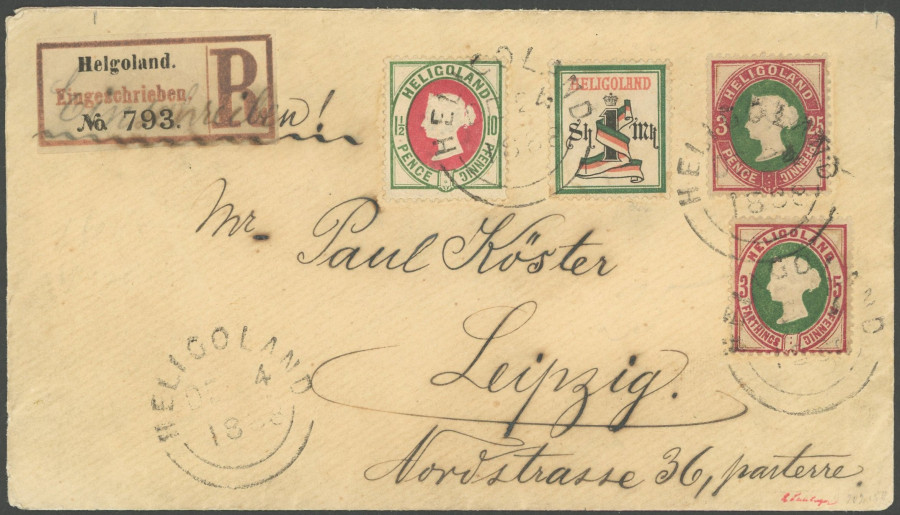 Helgoland.
Eingeschrieben.
No. 793.
R
Einschreiben!
HELIGOLAND
1½ 10
PENCE PFENNIG
HELIGOLAND
HELIGOLAND
Sh 1 Mk
HELIGOLAND
3 25
PENCE PFENNIG
HELIGOLAND
HELIGOLAND
3 5
FARTHINGS PFENNIG
HELIGOLAND
Mr. Paul Köster
Leipzig.
Nordstrasse 36, parterre.
HELIGOLAND
DE 4
18